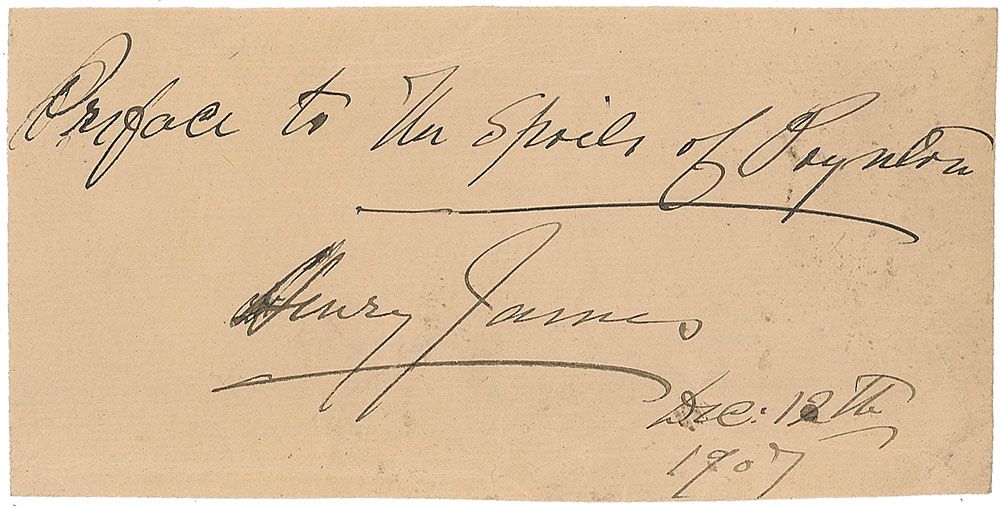 Preface to The Spoils of Poynton
Henry James
Dec: 12th
1907